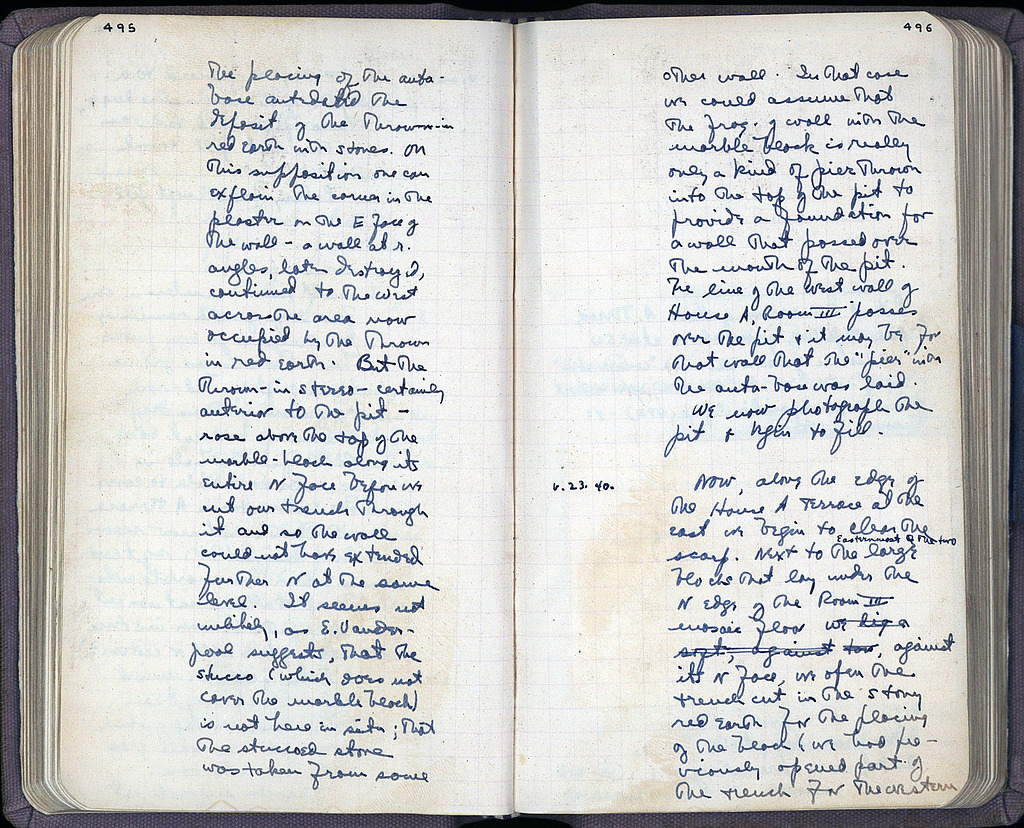 495
The placing of the anta-
base antedated the
deposit of the thrown-in
red earth with stones. On
this supposition one can
explain the corner in the
plaster on the E face of
the wall - a wall at r.
angles, later destroyed,
continued to the west
across the area now
occupied by the thrown
in red earth. But the
thrown-in stereo - certainly
anterior to the pit -
rose above the top of the
marble-block along its
entire N face before we
cut our trench through
it and so the wall
could not have extended
further N at the same
level. It seems not
unlikely, as E. Vander-
pool suggests, that the
stucco (which does not
cover the marble block)
is not here in situ; that
the stuccoed stone
was taken from some
496
other wall. In that case
we could assume that
the frag. of wall with the
marble block is really
only a kind of pier thrown
into the top of the pit to
provide a foundation for
a wall that passed over
the mouth of the pit.
The line of the west wall of
House A, Room III passes
over the pit & it may be for
that wall that the "pier" with
the anta-base was laid.
We now photograph the
pit & begin to fill.
V. 23. 40.
Now, along the edge of
the House A Terrace at the
east we begin to clear the
scarp. Next to the Easternmost of the two large
blocks that lay under the
N edge of the Room III
mosaic floor we dig a
against, against
its N face, we open the
trench cut in the stony
red earth for the placing
of the block (we had pre-
viously opened part of
the trench for the western